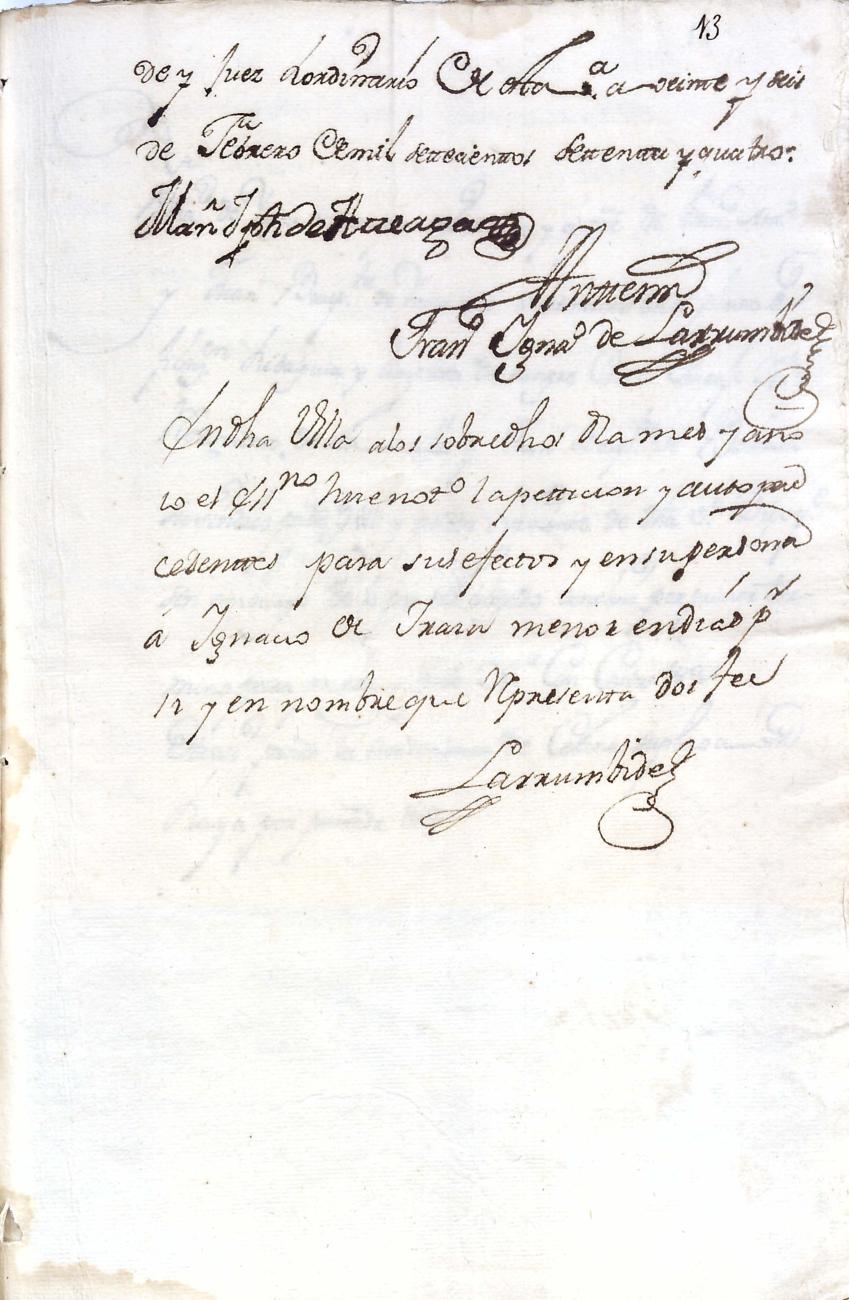 13
de y Juez hordinario de esta V.a a veinte y seis
de Febrero de mil settecientos settenta y quatro.
Man Jph de Arteaga
Anttemi
Fran.co Ygna.o de Larrumbide
En dha Villa a los sobredhos dia mes y año
yo el ss.no hice not.o la petticion y auto pre
cedentes para sus efectos y en su persona
á Ygnacio de menor en dias p.r
si y en nombre que Representa doi fee
Larrumbide